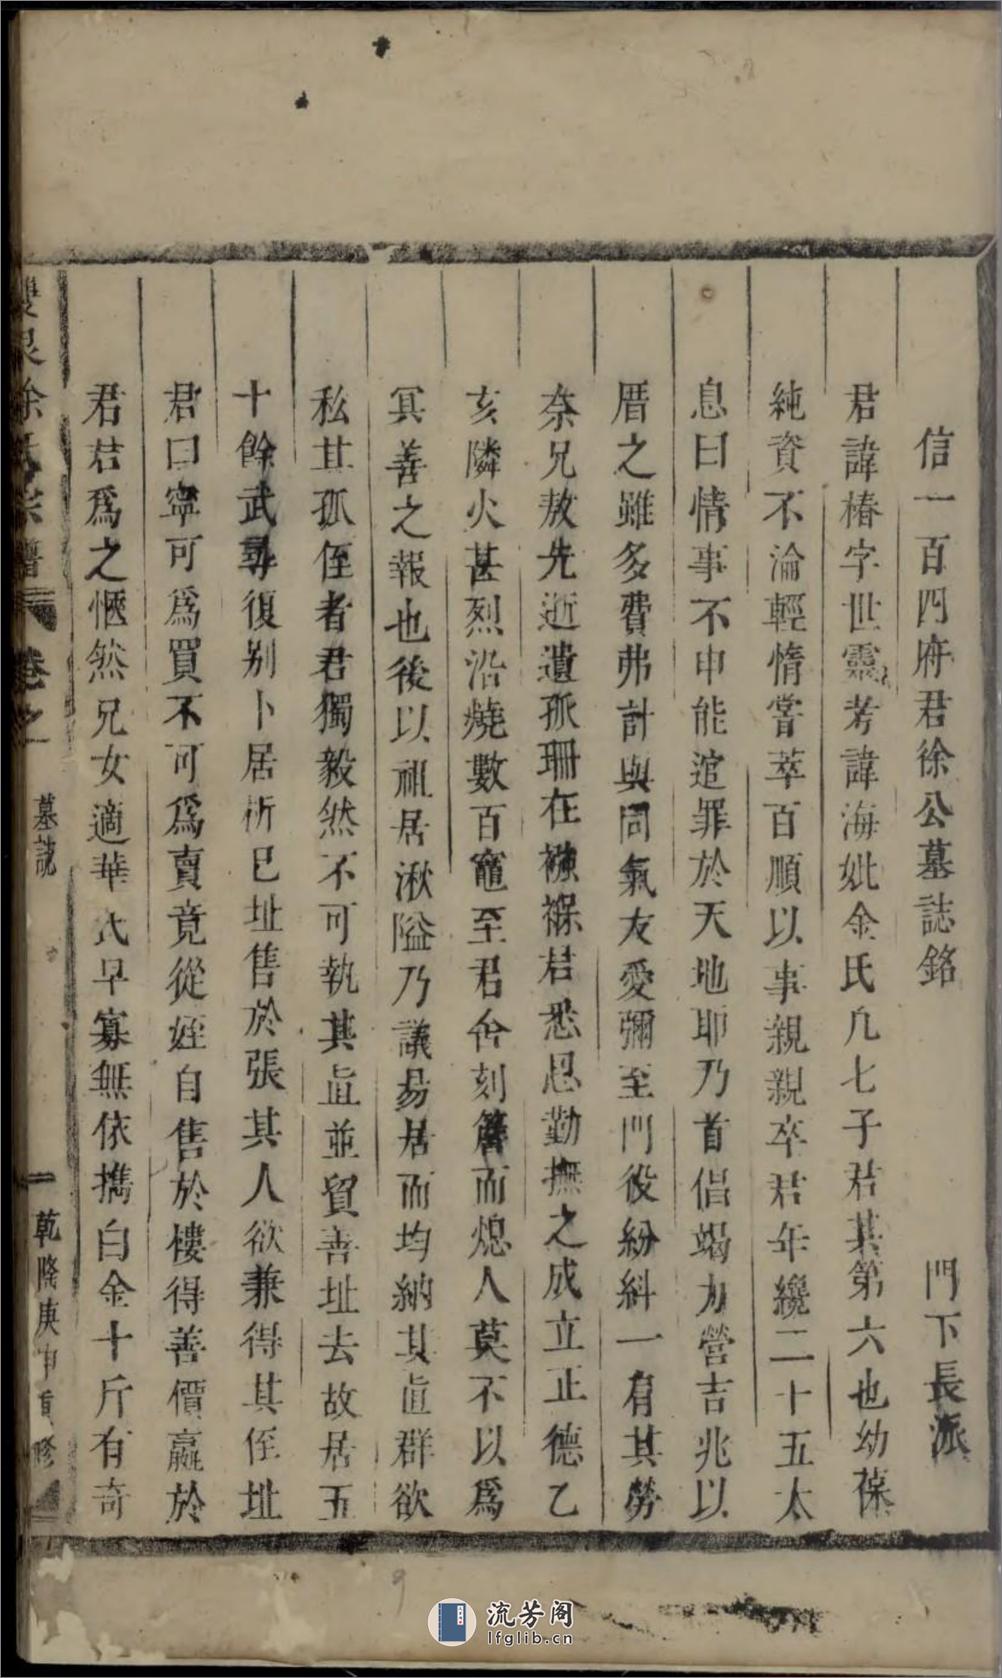 信一百四府君徐公墓誌銘 門下長派
君諱椿字世靈考諱海妣金氏凡七子君其第六也幼葆
純資不淪輕惰嘗萃百順以事親親卒君年纔二十五太
息曰情事不申能逭罪於天地耶乃首倡竭力營吉兆以
厝之雖多費弗計與同氣友愛彌至門役紛紏一有其勞
奈兄敖先逝遺孤珊在襁褓君悉思勤撫之成立正德乙
亥隣火甚烈沿燒數百竈至君舍刻簷而熄人莫不以爲
冥善之報也後以祖居湫隘乃議易居而均納其直群欲
私其孤侄者君獨毅然不可執其直並貿善址去故居五
十餘武尋復别卜居所已址售於張其人欲兼得其侄址
君曰寧可爲買不可爲賣竟從姪自售於樓得善價贏於
君君爲之愜然兄女適華氏早寡無依攜白金十斤有奇
雙泉徐氏宗譜 卷之一 墓誌 二 乾隆庚申重修
流芳阁
lfglib.cn